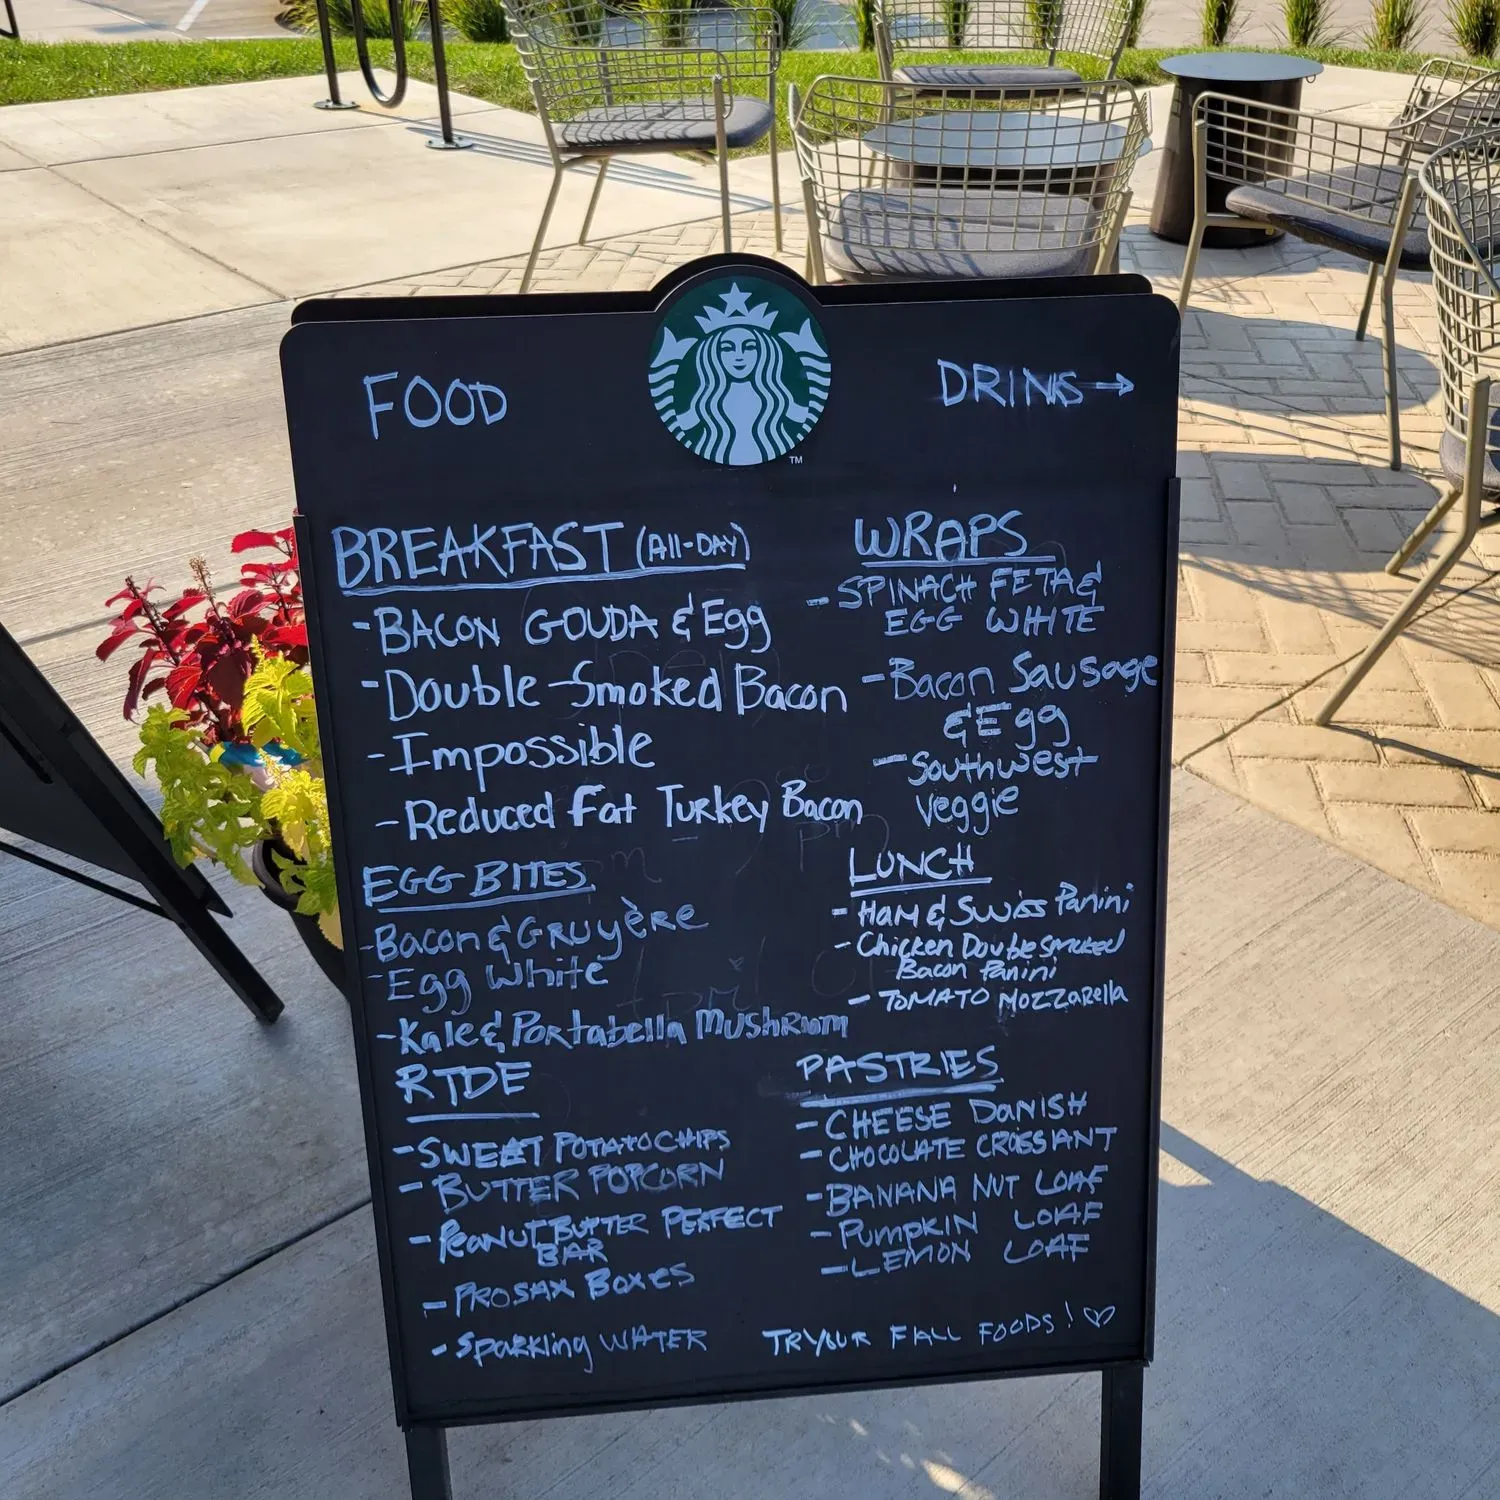 FOOD
DRINKS →
TM
BREAKFAST (All-DAY)
- BACON GOUDA & Egg
- Double-Smoked Bacon
- Impossible
- Reduced Fat Turkey Bacon
EGG BITES
- Bacon & Gruyère
- Egg White
- Kale & Portabella Mushroom
RTDE
- SWEET POTATO CHIPS
- BUTTER POPCORN
- Peanut Butter PERFECT
BAR
- PROSNAX Boxes
- Sparkling WATER
WRAPS
- SPINACH FETA &
EGG WHITE
- Bacon Sausage
& Egg
- Southwest
veggie
LUNCH
- Ham & Swiss Panini
- Chicken Double Smoked
Bacon Panini
- TOMATO Mozzarella
PASTRIES
- CHEESE DANISH
- CHOCOLATE CROISSANT
- BANANA NUT LOAF
- Pumpkin LOAF
- LEMON LOAF
TRY OUR FALL FOODS! ♡